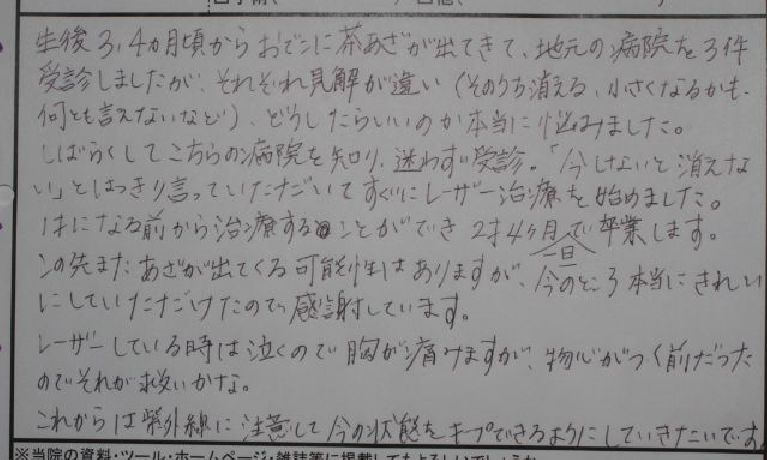 生後3,4ヵ月頃からおでこに茶あざが出てきて、地元の病院を3件
受診しましたが、それぞれ見解が違い(そのうち消える、小さくなるかも、
何とも言えないなど)、どうしたらいいのか本当に悩みました。
しばらくしてこちらの病院を知り、迷わず受診。「今しないと消えな
い」とはっきり言っていただいてすぐにレーザー治療を始めました。
1才になる前から治療することができ2才4ヶ月で一旦卒業します。
この先またあざが出てくる可能性はありますが、今のところ本当にきれい
にしていただけたので感謝しています。
レーザーしている時は泣くので胸が痛みますが、物心がつく前だった
のでそれが救いかな。
これからは紫外線に注意して今の状態をキープできるようにしていきたいです。
※当院の資料・ツール・ホームページ・雑誌等に掲載してもよろしいでしょうか